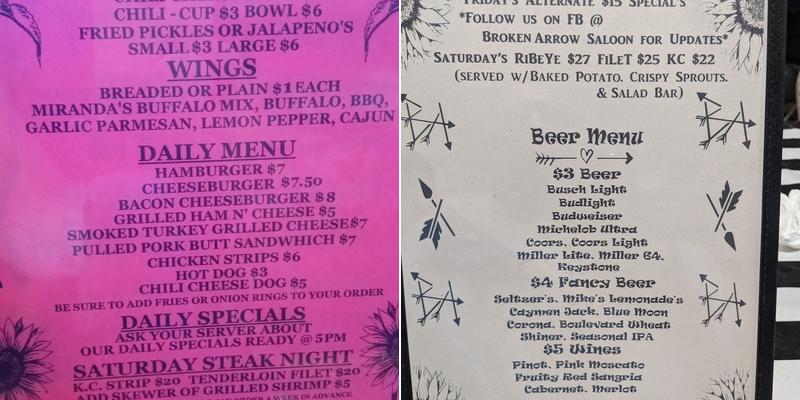 CHILI - CUP $3 BOWL $6
FRIED PICKLES OR JALAPENO'S
SMALL $3 LARGE $6
WINGS
BREADED OR PLAIN $1 EACH
MIRANDA'S BUFFALO MIX, BUFFALO, BBQ,
GARLIC PARMESAN, LEMON PEPPER, CAJUN
DAILY MENU
HAMBURGER $7
CHEESEBURGER $7.50
BACON CHEESEBURGER $8
GRILLED HAM N' CHEESE $5
SMOKED TURKEY GRILLED CHEESE$7
PULLED PORK BUTT SANDWHICH $7
CHICKEN STRIPS $6
HOT DOG $3
CHILI CHEESE DOG $5
BE SURE TO ADD FRIES OR ONION RINGS TO YOUR ORDER
DAILY SPECIALS
ASK YOUR SERVER ABOUT
OUR DAILY SPECIALS READY @ 5PM
SATURDAY STEAK NIGHT
K.C. STRIP $20 TENDERLOIN FILET $20
ADD SKEWER OF GRILLED SHRIMP $5
ORDER A WEEK IN ADVANCE
FRIDAY'S ALTERNATE $15 SPECIAL'S
*FOLLOW US ON FB @
BROKEN ARROW SALOON FOR UPDATES*
SATURDAY'S RIBEYE $27 FILET $25 KC $22
(SERVED W/BAKED POTATO, CRISPY SPROUTS,
& SALAD BAR)
Beer Menu
$3 Beer
Busch Light
Budlight
Budweiser
Michelob Ultra
Coors, Coors Light
Miller Lite, Miller 64,
Keystone
$4 Fancy Beer
Seltzer's, Mike's Lemonade's
Caymen Jack, Blue Moon
Corona, Boulevard Wheat
Shiner, Seasonal IPA
$5 Wines
Pinot, Pink Moscato
Fruity Red Sangria
Cabernet, Merlot